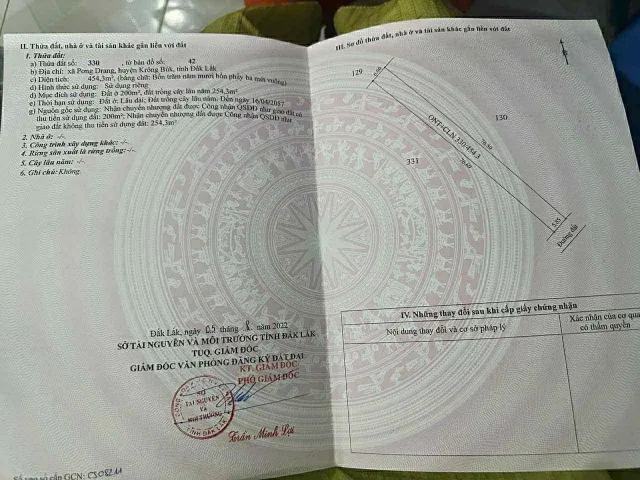 II. Thửa đất, nhà ở và tài sản khác gắn liền với đất
1. Thửa đất:
a) Thửa đất số: 330, tờ bản đồ số: 42
b) Địa chỉ: xã Pơng Drang, huyện Krông Búk, tỉnh Đắk Lắk
c) Diện tích: 454,3m², (bằng chữ: Bốn trăm năm mươi bốn phẩy ba mét vuông)
d) Hình thức sử dụng: Sử dụng riêng
đ) Mục đích sử dụng: Đất ở 200m², đất trồng cây lâu năm 254,3m²
e) Thời hạn sử dụng: Đất ở: Lâu dài; Đất trồng cây lâu năm: Đến ngày 16/04/2057
g) Nguồn gốc sử dụng: Nhận chuyển nhượng đất được Công nhận QSDĐ như giao đất có
thu tiền sử dụng đất: 200m²; Nhận chuyển nhượng đất được Công nhận QSDĐ như
giao đất không thu tiền sử dụng đất: 254,3m²
2. Nhà ở: -/-
3. Công trình xây dựng khác: -/-
4. Rừng sản xuất là rừng trồng: -/-
5. Cây lâu năm: -/-
6. Ghi chú: Không.
Đắk Lắk, ngày 05 tháng 8 năm 2022
SỞ TÀI NGUYÊN VÀ MÔI TRƯỜNG TỈNH ĐẮK LẮK
TUQ. GIÁM ĐỐC
GIÁM ĐỐC VĂN PHÒNG ĐĂNG KÝ ĐẤT ĐAI
KT. GIÁM ĐỐC
PHÓ GIÁM ĐỐC
SỞ
TÀI NGUYÊN
VÀ
MÔI TRƯỜNG
TỈNH ĐẮK LẮK
Trần Minh Lợi
Số vào sổ cấp GCN:
III. Sơ đồ thửa đất, nhà ở và tài sản khác gắn liền với đất
129
130
331
ONT+CLN 330/454.3
5.85
Đường đất
IV. Những thay đổi sau khi cấp giấy chứng nhận
Nội dung thay đổi và cơ sở pháp lý
Xác nhận của cơ quan
có thẩm quyền